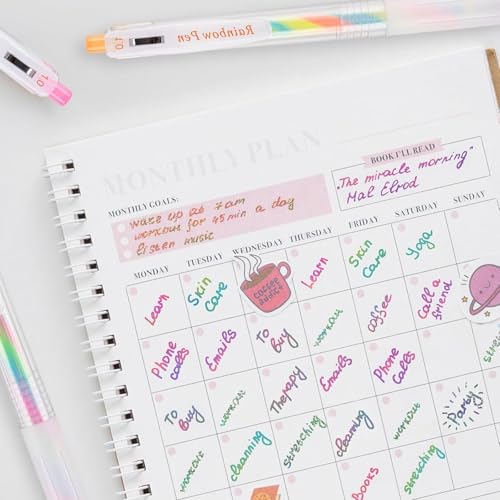 1.0
Rainbow Pen
1.0
MONTHLY PLAN
BOOK I'LL READ
"The miracle morning"
Hal Elrod
MONTHLY GOALS:
wake up at 7am
workout for 45 min a day
listen music
MONDAY TUESDAY WEDNESDAY THURSDAY FRIDAY SATURDAY SUNDAY
Learn Skin Care COFFEE ADDICT Learn Skin Care Yoga
Phone calls Emails To Buy workout coffee Call a friend
To Buy workout Therapy Emails Phone Calls
workout cleanning stretching cleanning workout Party
Books stretching